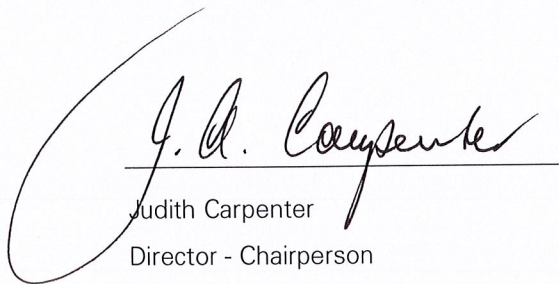 J. A. Carpenter
Judith Carpenter
Director - Chairperson